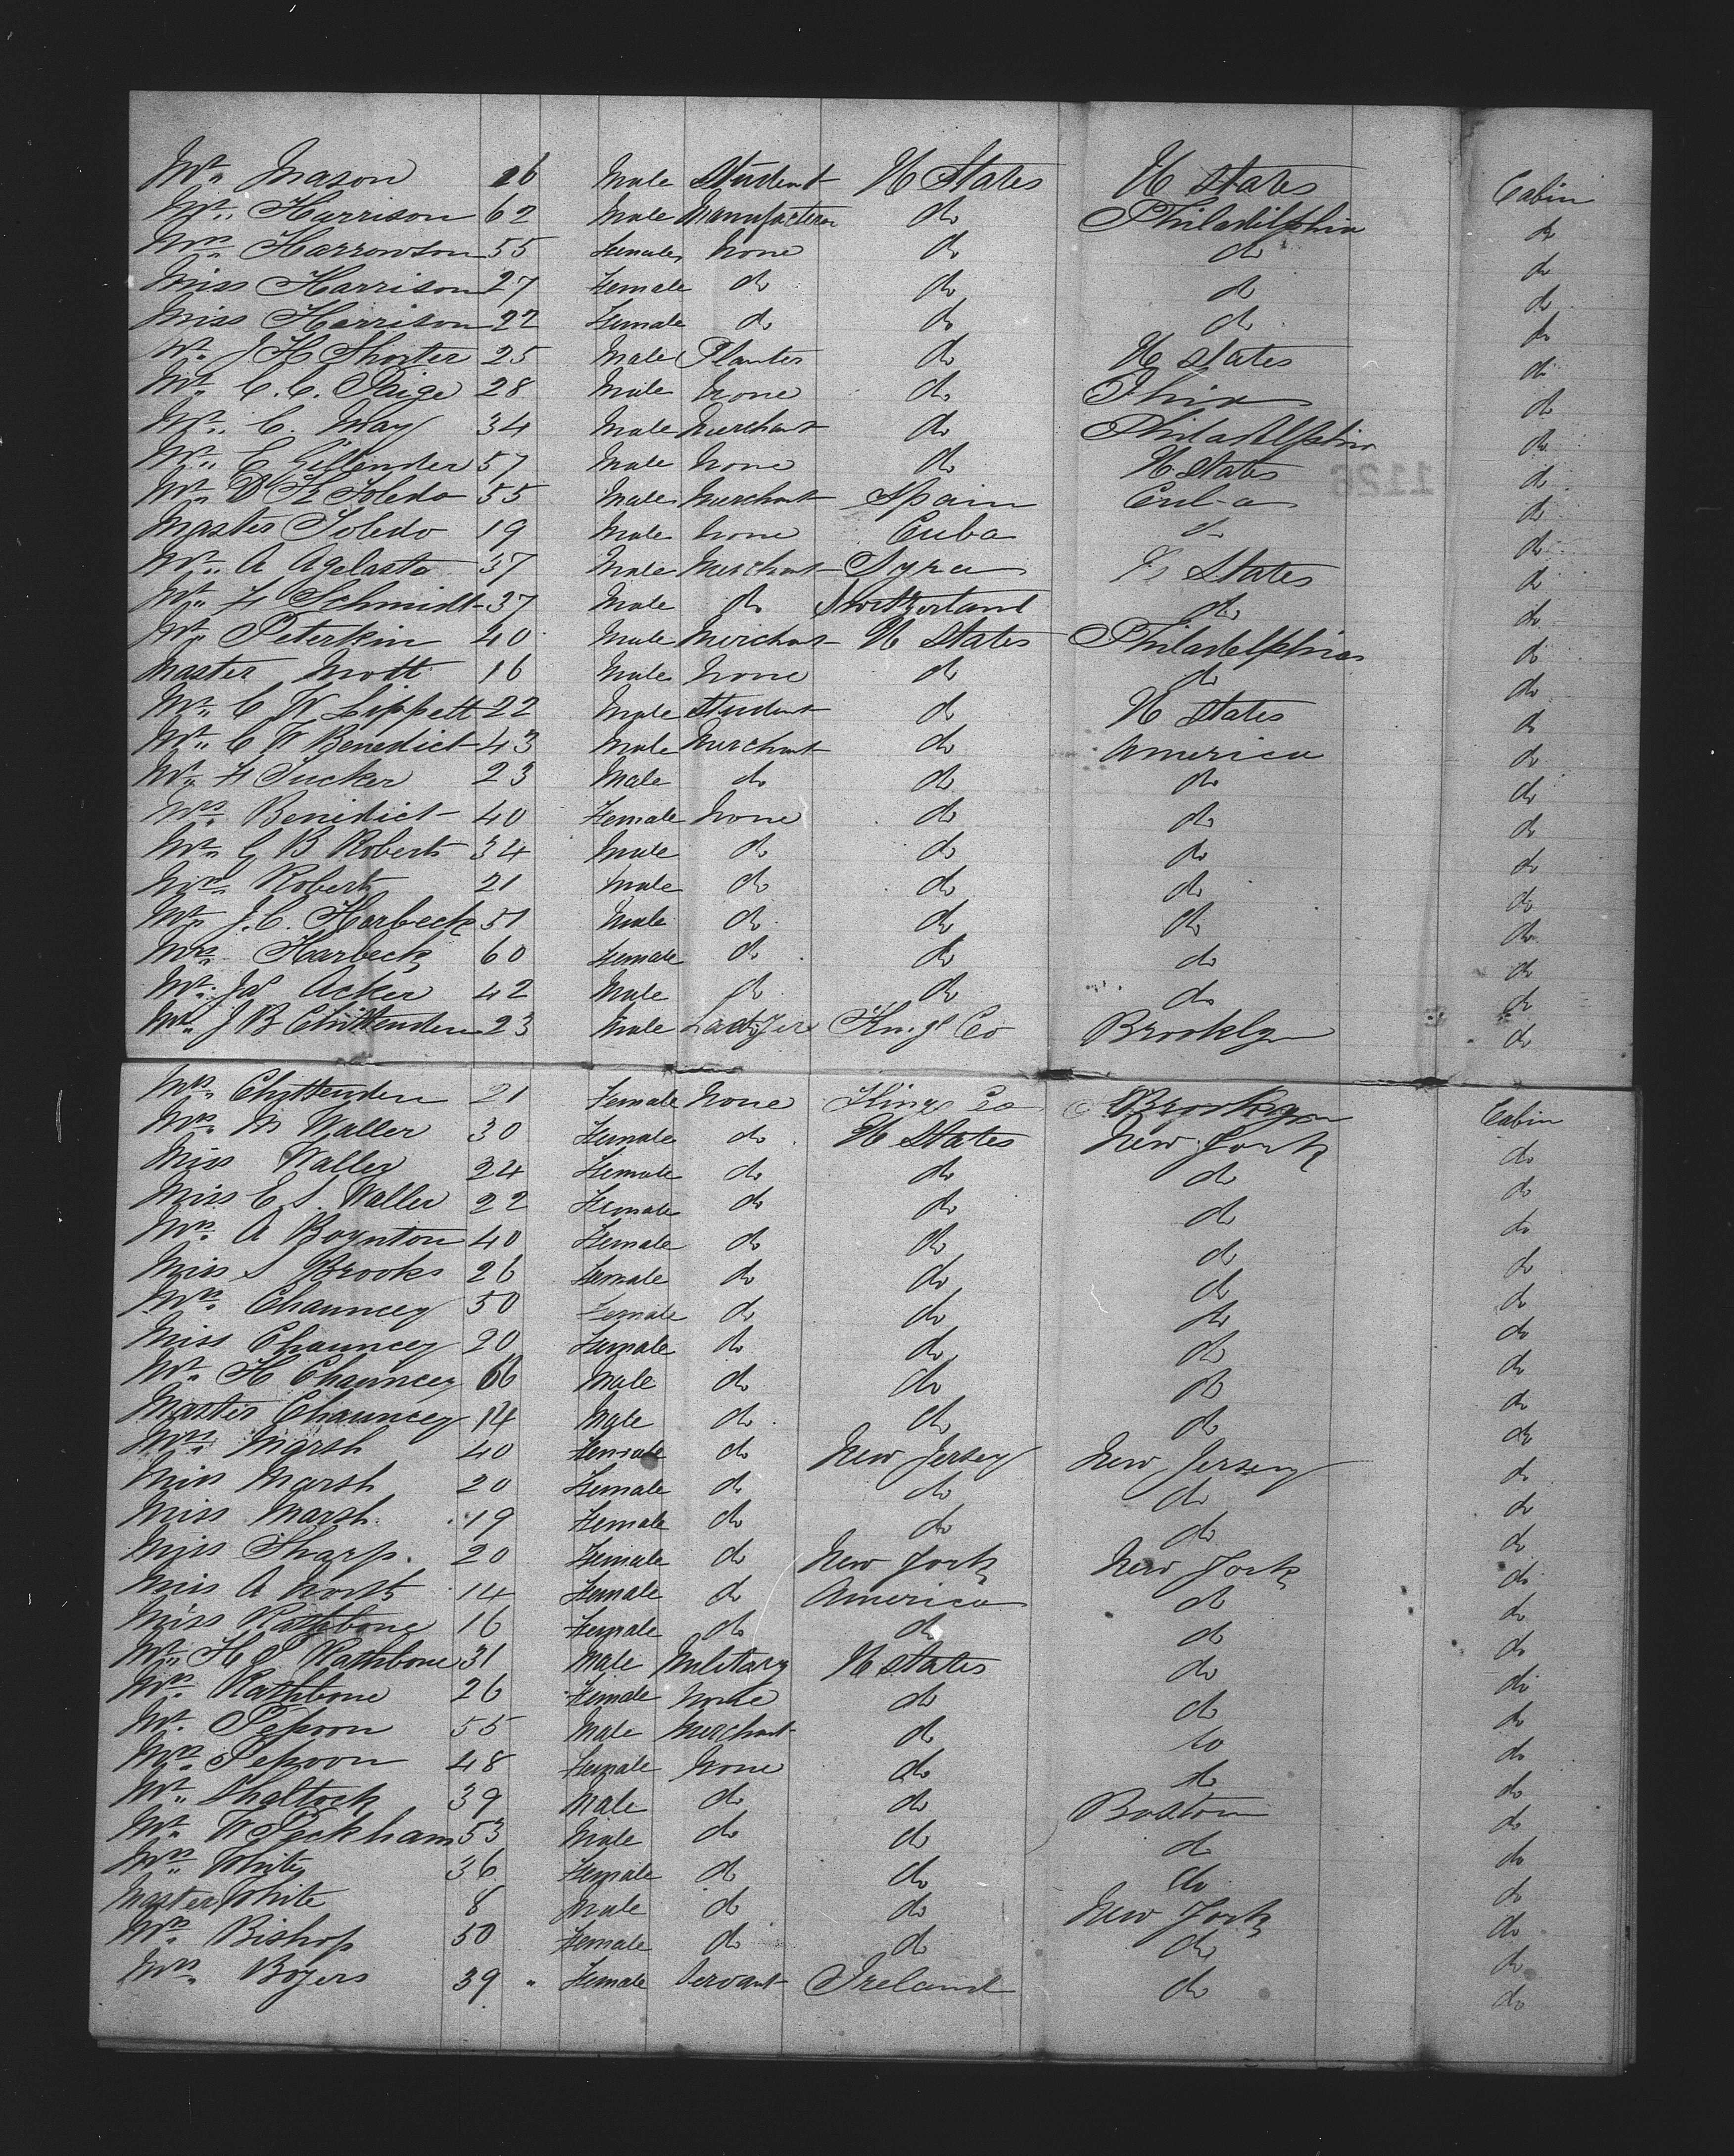 Mr. Mason 26 Male Student U States U States Cabin
Mr. Harrison 62 Male Manufacturer do Philadelphia do
Mrs. Harrowson 55 Female None do do do
Miss Harrison 27 Female do do do do
Miss Harrison 22 Female do do do do
Mr. J H Shorter 25 Male Planter do U States do
Mr. C. C. Paige 28 Male None do do
Mr. C. May 34 Male Merchant do Philadelphia do
Mr. E Gillender 57 Male None do U States do
Mr. D F Toledo 55 Male Merchant Spain Cuba do
Master Toledo 19 Male None Cuba do do
Mr. A Agelasto 37 Male Merchant Syra U States do
Mr. H Schmidt 37 Male do Switzerland do do
Mr. Peterkin 40 Male Merchant U States Philadelphia do
Master Mott 16 Male None do do do
Mr. C W Lippett 22 Male Student do U States do
Mr. C W Benedict 43 Male Merchant do America do
Mr. H Tucker 23 Male do do do do
Mrs. Benedict 40 Female None do do do
Mr. G B Roberts 34 Male do do do do
Mrs. Roberts 21 Male do do do do
Mr. J. C. Harbeck 51 Male do do do do
Mrs. Harbeck 60 Female do do do do
Mr. Jas Acker 42 Male do do do do
Mr. J B Chittenden 23 Male Kings Co Brooklyn do
Mrs. Chittenden 21 Female None Kings Co Brooklyn Cabin
Mrs. M Waller 30 Female do U States New York do
Miss Waller 24 Female do do do do
Miss E S. Waller 22 Female do do do do
Mrs. A Boynton 40 Female do do do do
Miss S Brooks 26 Female do do do do
Mrs. Chauncey 50 Female do do do do
Miss Chauncey 20 Female do do do do
Mr. H Chauncey 66 Male do do do do
Master Chauncey 14 Male do do do do
Mrs. Marsh 40 Female do New Jersey New Jersey do
Miss Marsh 20 Female do do do do
Miss Marsh 19 Female do do do do
Miss Sharp. 20 Female do New York New York do
Miss A North 14 Female do America do do
Miss Rathbone 16 Female do do do do
Mr. H S Rathbone 31 Male Military U States do do
Mrs. Rathbone 26 Female None do do do
Mr. Pepoon 55 Male Merchant do do do
Mrs. Pepoon 48 Female None do do do
Mr. Shattock 39 Male do do Boston do
Mr. W Peckham 53 Male do do do do
Mrs. White 36 Female do do do do
Master White 8 Male do do New York do
Mrs. Bishop 50 Female do do do do
Mrs. Boyers 39 " Female Servant Ireland do do